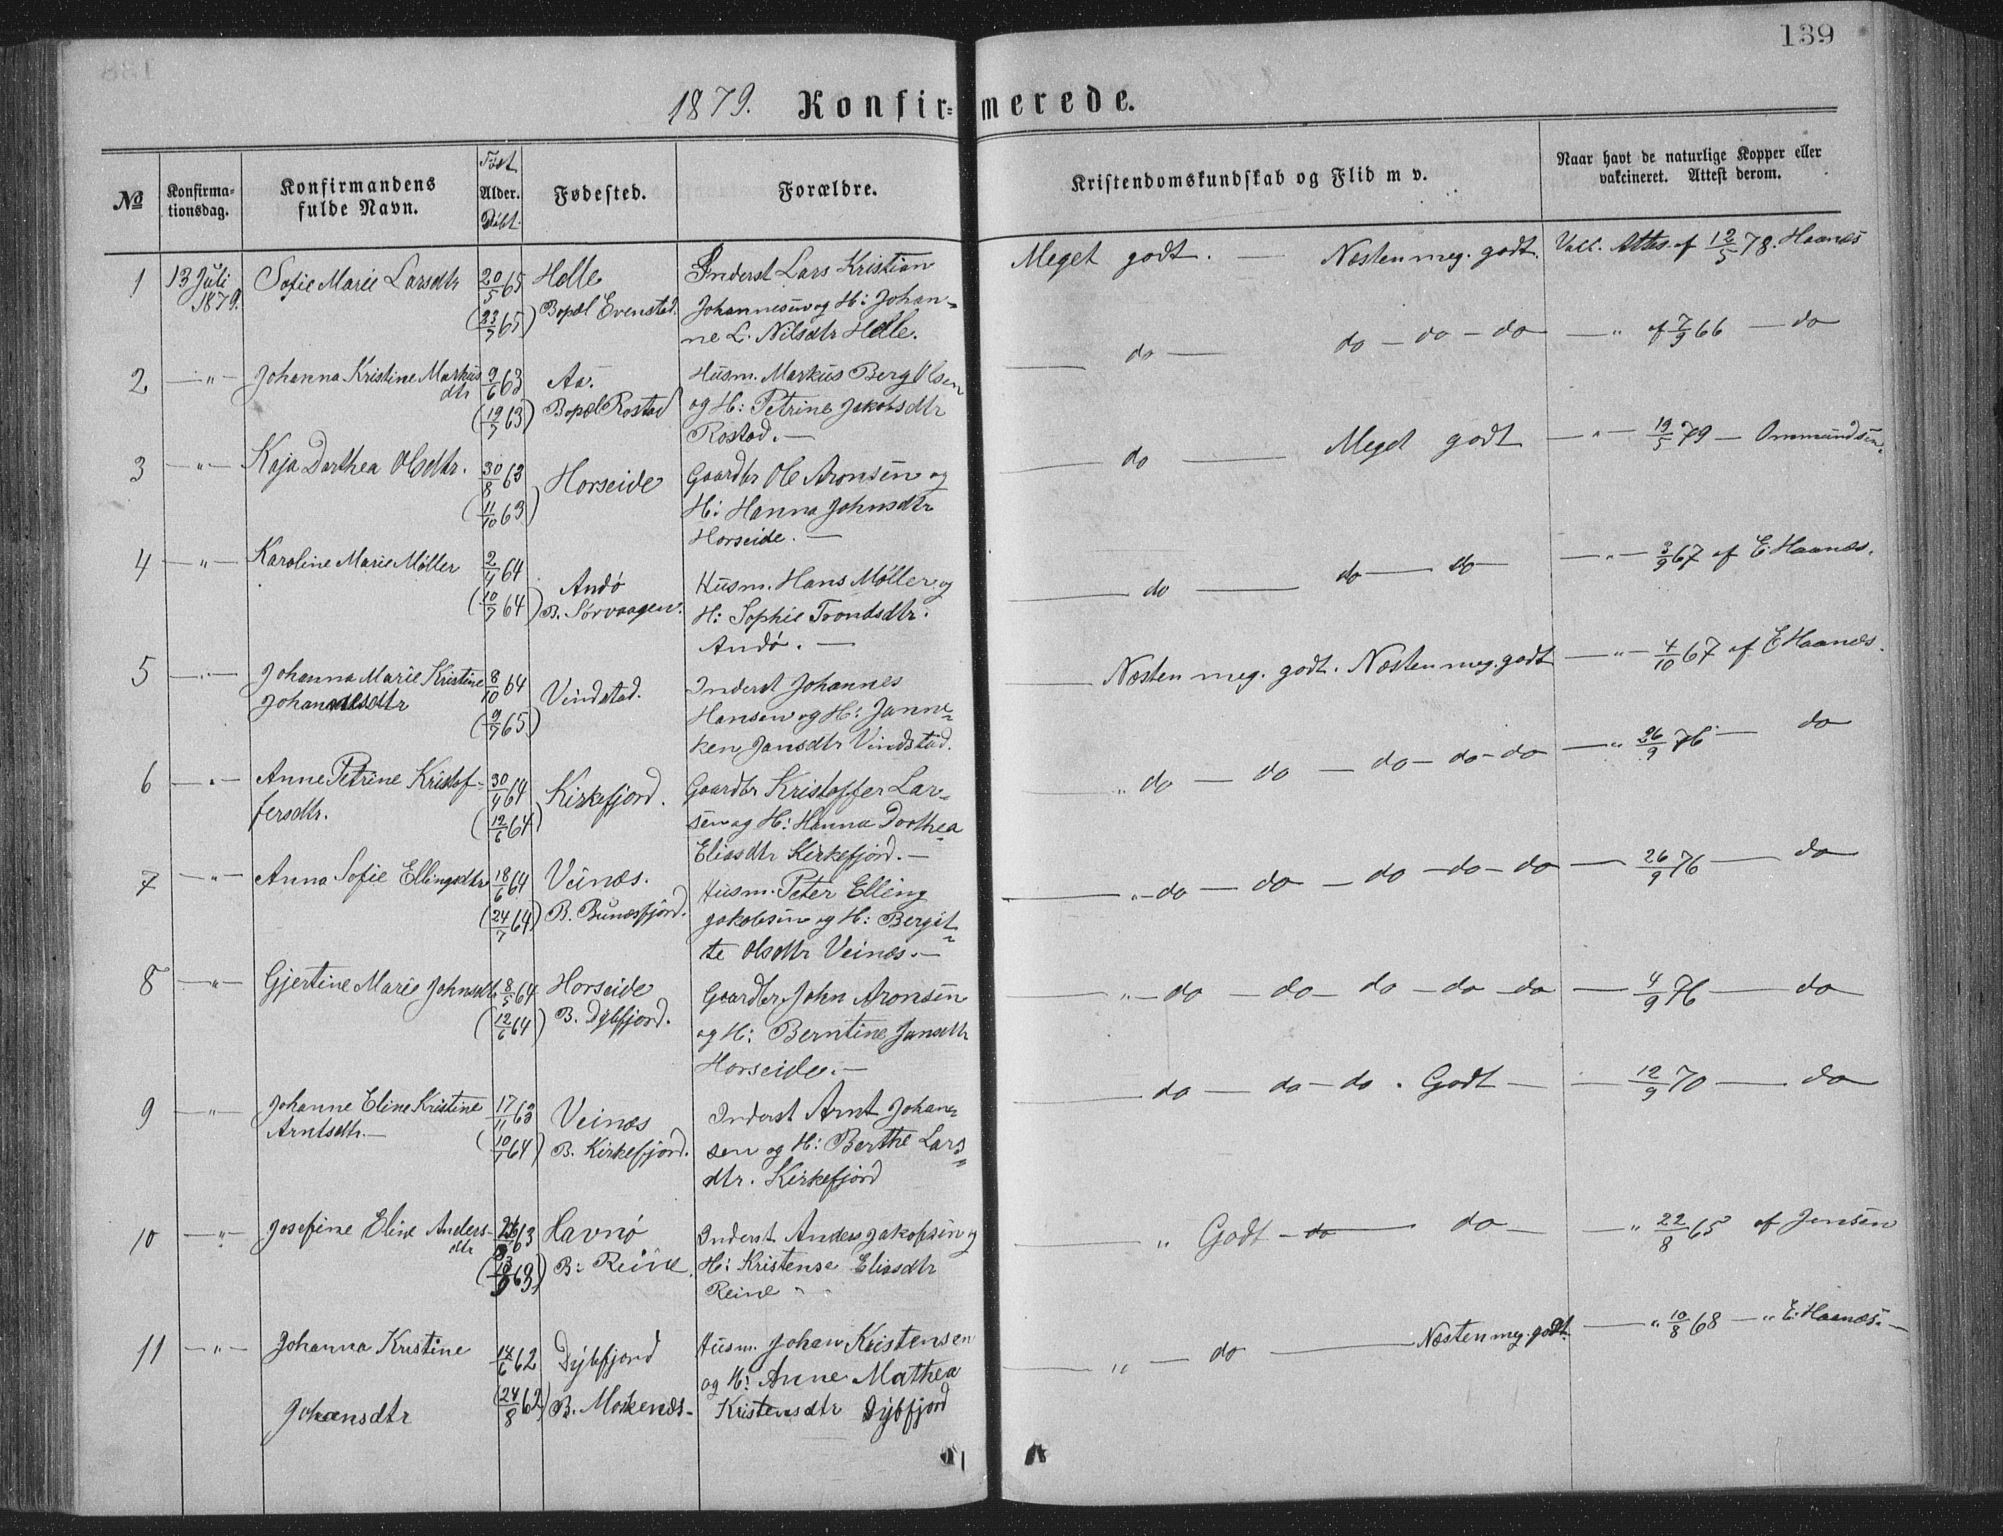 139
1879. Konfirmerede.
№
Konfirmationsdag.
Konfirmandens fulde Navn.
Født
Alder.
Døbt.
Fødested.
Forældre.
Kristendomskundskab og Flid m v.
Naar havt de naturlige Kopper eller vakcineret. Attest derom.
1
13 Juli 1879.
Sofie Marie Larsdtr
20/5 65
(23/7 65)
Helle
Bopæl Evenstad.
Inderst Lars Kristian
Johannesen og H: Johan-
ne L. Nilsdtr Helle.
Meget godt. — Næsten meg. godt.
Vacc. Attes. af 12/5 78. Haanes
2 — " —
Johanna Kristine Markus
dtr
9/6 63
(19/7 63)
Aa.
Bopæl Rostad
Husm. Markus Berg Olsen
og H: Petrine Jakobsdtr
Rostad. —
— do — do — do — do
— " af 7/9 66 — do
3 — " —
Kaja Dorthea Olsdtr.
30/8 63
(11/10 63)
Horseide
Gaardbr Ole Aronsen og
H: Hanna Johnsdtr
Horseide. —
— do — Meget godt
— " — 19/5 79 — Ommundsen.
4 — " —
Karoline Marie Møller
2/4 64
(10/7 64)
Andø
B. Sørvaagen.
Husm. Hans Møller og
H: Sophie Trondsdtr.
Andø. —
— do — do — do —
— " — 3/9 67 af E. Haanes.
5 — " —
Johanna Marie Kristine
Johannesdtr
8/10 64
(9/7 65)
Vindstad.
Inderst Johannes
Hansen og H: Janne-
ken Jansdtr Vindstad.
— Næsten meg. godt. Næsten meg. godt
— " — 4/10 67 af E Haanes.
6 — " —
Anne Petrine Kristof-
fersdtr.
30/4 64
(12/6 64)
Kirkefjord.
Gaardbr Kristoffer Lar-
sen og H: Hanna Dorthea
Eliasdtr Kirkefjord. —
— " do — do — do — do — do
— " 26/9 76 — do
7 — " —
Anna Sofie Ellingsdtr
18/6 64
(24/7 64)
Veinæs.
B. Bunæsfjord.
Husm. Peter Elling
Jakobsen og H: Bergit-
te Olsdtr Veinæs. —
— " — do — do — do — do — do
— 26/9 76 — do
8 — " —
Gjertine Marie Johnsdtr
8/5 64
(12/6 64)
Horseide
B. Dybfjord.
Gaardbr John Aronsen
og H: Berntine Jansdtr
Horseide. —
— " — do — do — do — do — do
— 4/9 76 — do
9 — "
Johanne Eline Kristine
Arntsdtr. —
17/11 63
(10/7 64)
Veinæs
B. Kirkefjord.
Inderst Arnt Johan-
sen og H: Berthe Lars-
dtr. Kirkefjord
— do — do — do. Godt —
— 12/9 70 — do
10 — " —
Josefine Eline Anders-
dtr
63
63)
Havnø
B: Reine.
Inderst Anders Jakobsen og
H: Kristense Eliasdtr
Reine "
— " Godt — do — do —
— " 22/8 65 af Jensen
11 — " —
Johanna Kristine
Johansdtr
14/6 62
(24/8 62)
Dybfjord
B. Moskenæs.
Husm. Johan Kristensen
og H: Anne Mathea
Kristensdtr Dybfjord
— " — do — Næsten meg. godt.
— " 10/8 68 — " E. Haanes. —